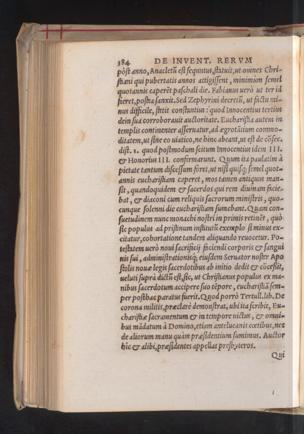 384 DE INVENT. RERVM
pòst anno, Anacletũ est sequutus, statuit, ut omnes Chri-
stiani qui pubertatis annos attigissent, minimùm semel
quotannis caperēt paschali die. Fabianus uerò ut ter id
fieret, postea sanxit. Sed Zephyrini decretũ, ut factu mi-
nus difficile, stetit constantius: quod Innocentius tertius
dein sua corroborauit auctoritate. Eucharistia autem in
templis continenter asseruatur, ad ægrotātium commo-
ditatem, ut sine eo uiatico, ne hinc abeant, ut est de cōsec-
dist. 2. quod postmodum scitum Innocentius idem III.
& Honorius III. confirmarunt. Quum ita paulatim à
pietate tantum discessum foret, ut nisi quisq; semel quot-
annis eucharistiam caperet, mos tamen antiquus man-
sit, quandoquidem & sacerdos qui rem diuinam facie-
bat, & diaconi cum reliquis sacrorum ministris, quo-
cunque solenni die eucharistiam sumebant. Quam con-
suetudinem nunc monachi nostri in primis retinēt, quò
sic populus ad pristinum institutũ exemplo si minus ex-
citatur, cohortatione tandem aliquando reuocetur. Po-
testatem uerò noui sacrificij faciendi corporis & sangui
nis sui, administrationisq; eiusdem Seruator noster Apo
stolis nouæ legis sacerdotibus ab initio dedit & cōcessit,
ueluti suprà dictũ est, sic, ut Christianus populus ex ma-
nibus sacerdotum accipere suo tēpore, eucharistiā sem-
per postbac paratus fuerit. Quod porrò Tertull. lib. De
corona militis, præclarè demonstrat, ubi ita scribit, Eu-
charistiæ sacramentum & in tempore uictus, & omni-
bus mādatum à Domino, etiam antelucanis cœtibus, nec
de aliorum manu quàm præsidentium sumimus. Auctor
hic & alibi, præsidentes appellat presbyteros.
Qui